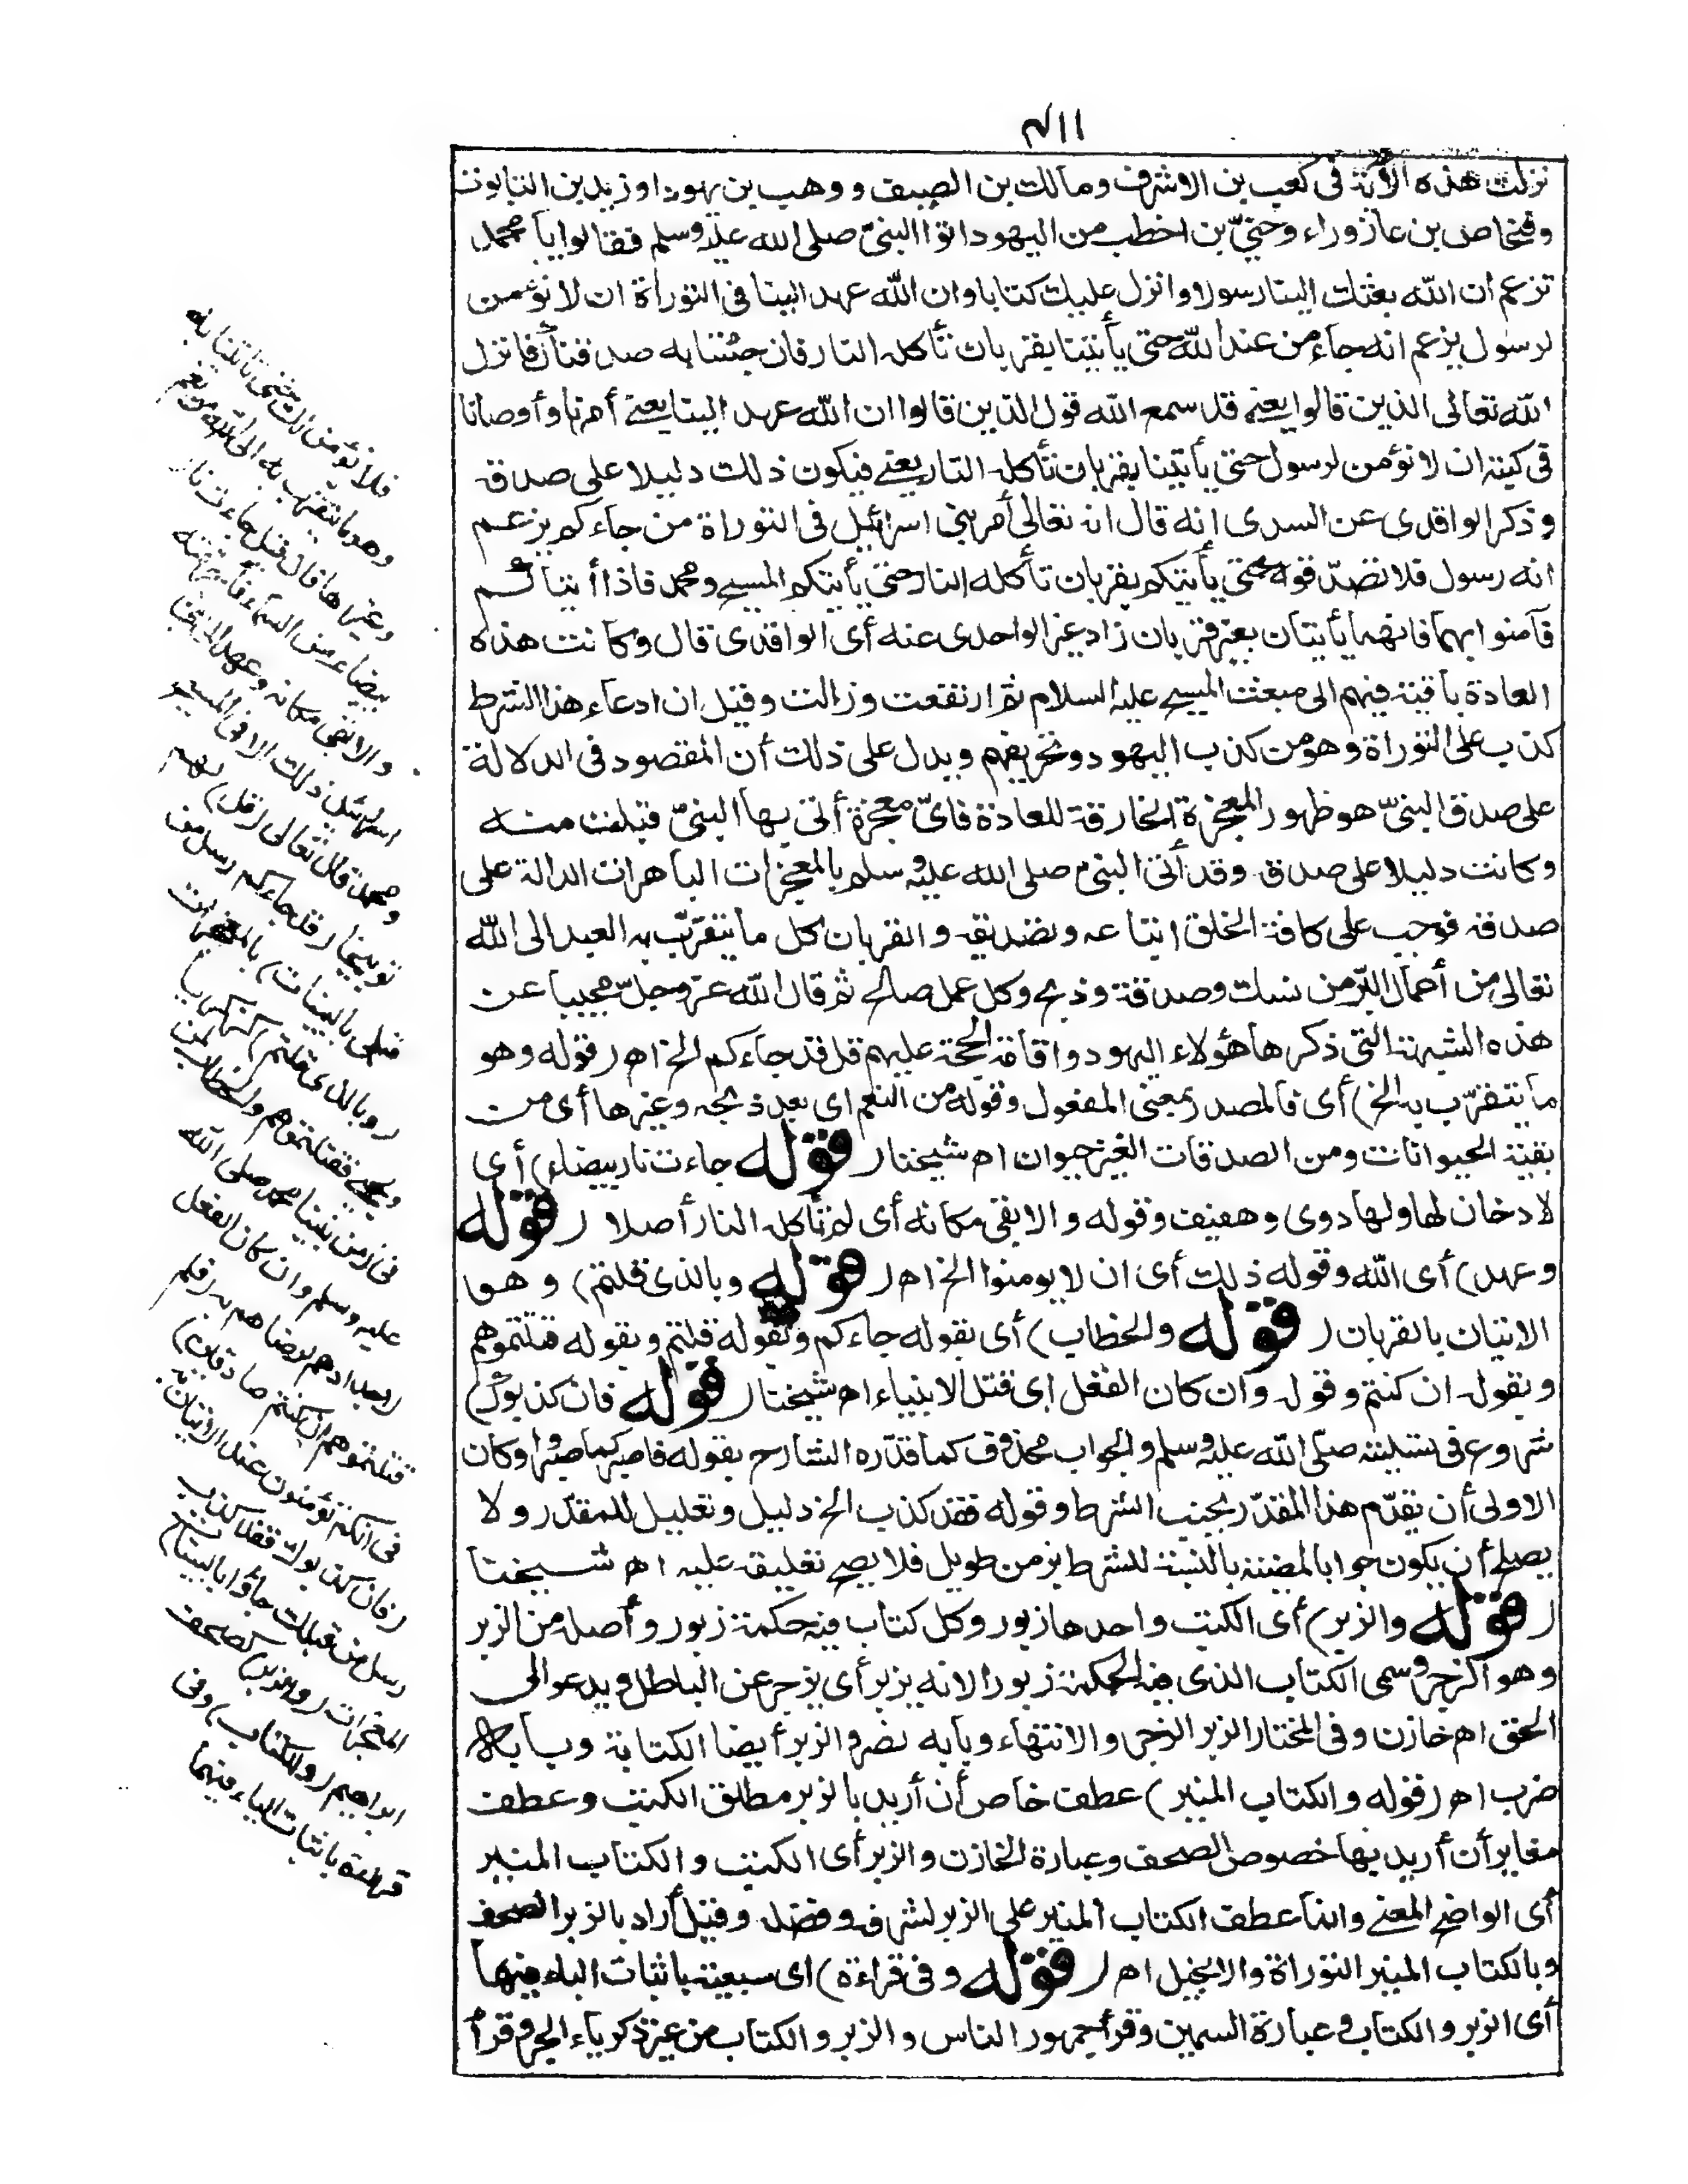 ٤١١
نزلت هذه الآية فى كعب بن الاشرف ومالك بن الصيف ووهب بن يهودا وزيد بن التابوت
وفنحاص بن عازوراء وحيىّ بن اخطب من اليهود اتوا النبىّ صلى الله عليه وسلم فقالوا يا محمد
تزعم ان الله بعثك الينا رسولا وانزل عليك كتابا وان الله عهد الينا فى التوراة ان لا نؤمن
لرسول يزعم انه جاء من عند الله حتى يأتينا بقربان تأكله النار فان جئتنا به صدقناك فانزل
الله تعالى الذين قالوا يعنى قد سمع الله قول الذين قالوا ان الله عهد الينا يعنى أمرنا وأوصانا
فى كتبه ان لا نؤمن لرسول حتى يأتينا بقربان تأكله النار يعنى فيكون ذلك دليلا على صدقه
وذكر الواقدى عن السدى انه قال ان الله تعالى أمر بنى اسرائيل فى التوراة من جاءكم يزعم
انه رسول فلا تصدّقوه حتى يأتيكم بقربان تأكله النار حتى يأتيكم المسيح ومحمد فاذا أتياكم
فآمنوا بهما فانهما يأتيان بغير قربان زاد غير الواحدى عنه أى الواقدى قال وكانت هذه
العادة باقية فيهم الى مبعث المسيح عليه السلام ثم ارتفعت وزالت وقيل ان ادعاء هذا الشرط
كذب على التوراة وهو من كذب اليهود وتحريفهم ويدل على ذلك أن المقصود فى الدلالة
على صدق النبىّ هو ظهور المعجزة الخارقة للعادة فاىّ معجزة أتى بها النبىّ قبلت منه
وكانت دليلا على صدقه وقد أتى النبى صلى الله عليه وسلم بالمعجزات الباهرات الدالة على
صدقه فوجب على كافة الخلق اتباعه وتصديقه والقربان كل ما يتقرّب به العبد الى الله
تعالى من أعمال البرّ من نسك وصدقة وذبح وكل عمل صالح ثم قال الله عز وجلّ مجيبا عن
هذه الشبهة التى ذكرها هؤلاء اليهود واقامة الحجة عليهم قل قد جاءكم الخ اه (قوله وهو
ما يتقرّب به الخ) أى فالمصدر بمعنى المفعول وقوله من النعم اى بعد ذبحه وغيرها أى من
بقية الحيوانات ومن الصدقات الغير حيوان اه شيخنا (قوله جاءت نار بيضاء) أى
لا دخان لها ولها دوى وهفيف وقوله والا بقى مكانه أى لم تأكله النار أصلا (قوله
وعهد) أى الله وقوله ذلك أى ان لا يومنوا الخ اه (قوله وبالذى قلتم) وهو
الاتيان بالقربان (قوله والخطاب) أى بقوله جاءكم وبقوله قلتم وبقوله قتلتموهم
وبقوله ان كنتم وقوله وان كان الفعل اى قتل الانبياء اه شيخنا (قوله فان كذبوك)
شروع فى تسليته صلى الله عليه وسلم والجواب محذوف كما قدّره الشارح بقوله فاصبر كما صبروا وكان
الاولى أن يقدّم هذا المقدّر بجنب الشرط وقوله فقد كذب الخ دليل وتعليل للمقدّر ولا
يصلح أن يكون جوابا لمضيه بالنسبة للشرط بزمن طويل فلا يصح تعليقه عليه اه شيخنا
(قوله والزبر) أى الكتب واحدها زبور وكل كتاب فيه حكمة زبور وأصله من الزبر
وهو الزجر وسمى الكتاب الذى فيه الحكمة زبورا لانه يزبر أى يزجر عن الباطل ويدعو الى
الحق اه خازن وفى المختار الزبر الزجر والانتهاء وبابه نصر والزبر أيضا الكتابة وبابه
ضرب اه (قوله والكتاب المنير) عطف خاص أن أريد بالزبر مطلق الكتب وعطف
مغاير أن أريد بها خصوص الصحف وعبارة الخازن والزبر أى الكتب والكتاب المنير
أى الواضح المعنى وانما عطف الكتاب المنير على الزبر لشرفه وفضله وقيل أراد بالزبر الصحف
وبالكتاب المنير التوراة والانجيل اه (قوله وفى قراءة) اى سبعية باثبات الباء فيهما
أى الزبر والكتاب وعبارة السمين وقرأ جمهور الناس والزبر والكتاب من غير ذكر باء الجر وقرأ
فلا نؤمن لك حتى تأتينا به
وهو ما يتقرب به الى الله من نعم
وغيرها فان قبل جاءت نار
بيضاء من السماء فأحرقته
والا بقى مكانه وعهد الى بنى
اسرائيل ذلك الا فى المسيح
ومحمد قال تعالى (قل) لهم
توبيخا (قد جاءكم رسل من
قبلى بالبينات) بالمعجزات
(وبالذى قلتم) كزكريا
ويحيى فقتلتموهم والخطاب لمن
فى زمن نبينا محمد صلى الله
عليه وسلم وان كان الفعل
لاجدادهم لرضاهم به (فلم
قتلتموهم ان كنتم صادقين)
فى انكم تؤمنون عند الاتيان به
(فان كذبوك فقد كذب
رسل من قبلك جاؤا بالبينات)
المعجزات (والزبر) كصحف
ابراهيم (والكتاب) وفى
قراءة باثبات الباء فيهما